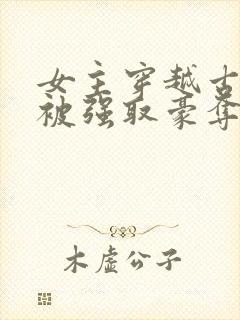 女主穿越古
被强取豪夺
木虚公子